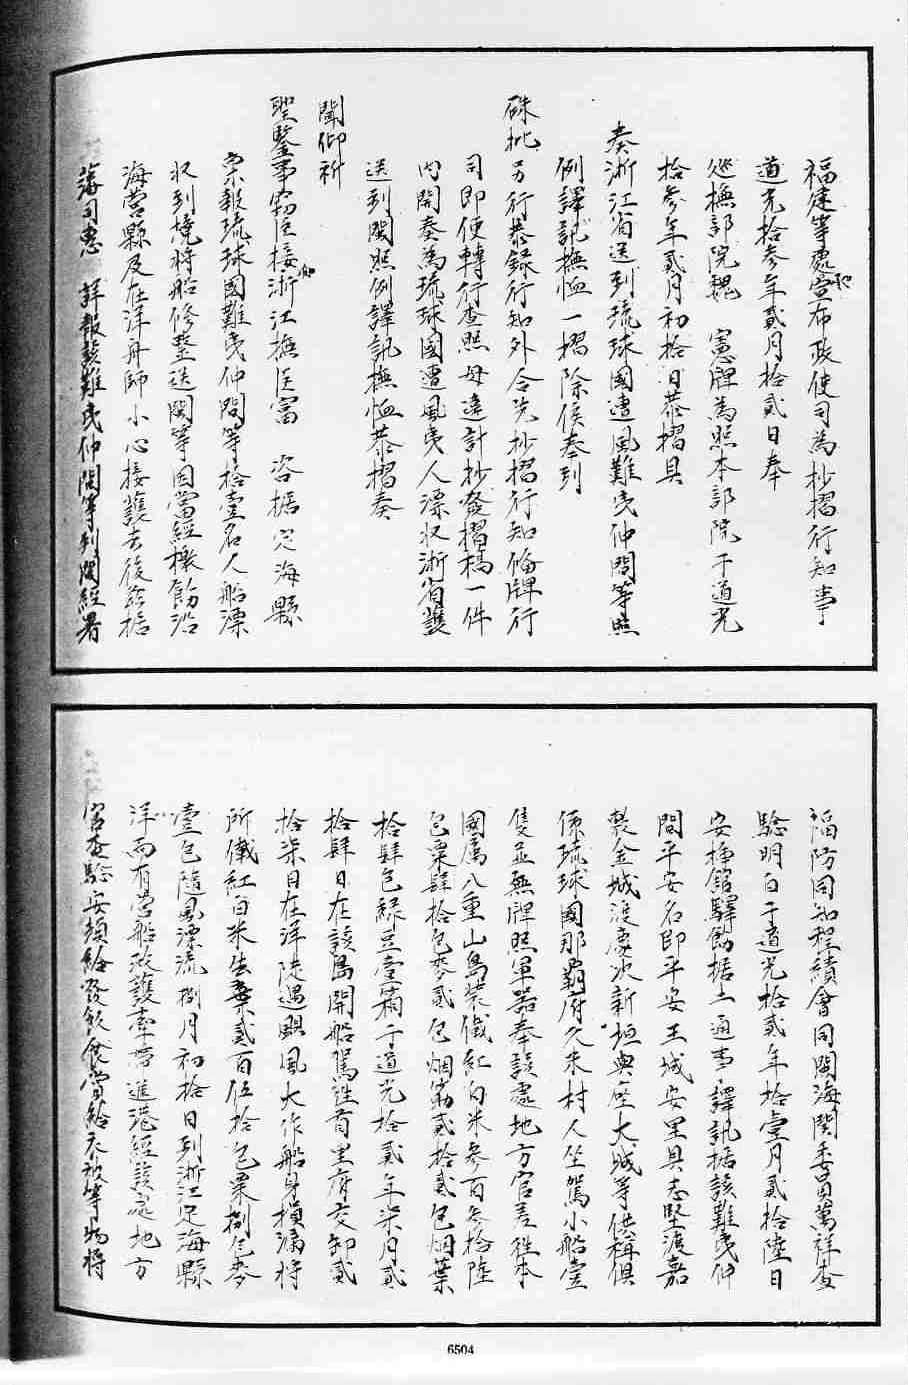 福建等處承宣布政使司為抄摺行知事
道光拾參年貳月拾貳日奉
巡撫部院魏　憲牌為照本部院于道光
拾參年貳月初拾日恭摺具
奏浙江省送到琉球國遭風難夷仲間等照
例譯訊撫恤一摺除俟奉到
硃批另行恭錄行知外合先抄摺行知備牌行
司即便轉行查照毋違計抄發摺稿一件
內開奏為琉球國遭風夷人漂收浙省護
送到閩照例譯訊撫恤恭摺奏
聞仰祈
聖鑒事竊臣接准浙江撫臣富　咨據定海縣
稟報琉球國難夷仲間等拾壹名人船漂
收到境將船修整送閩等因當經檄飭沿
海營縣及在洋舟師小心接護去後茲據
藩司惠　詳報該難夷仲間等到閩經署
福防同知程績會同閩海關委員萬祥查
驗明白于道光拾貳年拾壹月貳拾陸日
安插館驛飭據土通事譯訊據該難夷仲
間平安名即平安玉城安里具志堅渡嘉
敷金城渡慶次新垣與座大城等供稱俱
係琉球國那霸府久米村人坐駕小船壹
隻並無牌照軍器奉該處地方官差往本
國屬八重山島裝儎紅白米參百參拾陸
包粟肆拾包麥貳包烟葉貳拾貳包烟葉
拾肆包綠豆壹箱于道光拾貳年柒月貳
拾肆日在該島開船駕往首里府交卸貳
拾柒日在洋陡遇颶風大作船身損漏將
所儎紅白米丟棄貳百伍拾包粟捌包麥
壹包隨風漂流捌月初拾日到浙江定海縣
洋面有營船救護牽帶進港經該處地方
官查驗安頓給發飲食賞給衣被等物將
6504